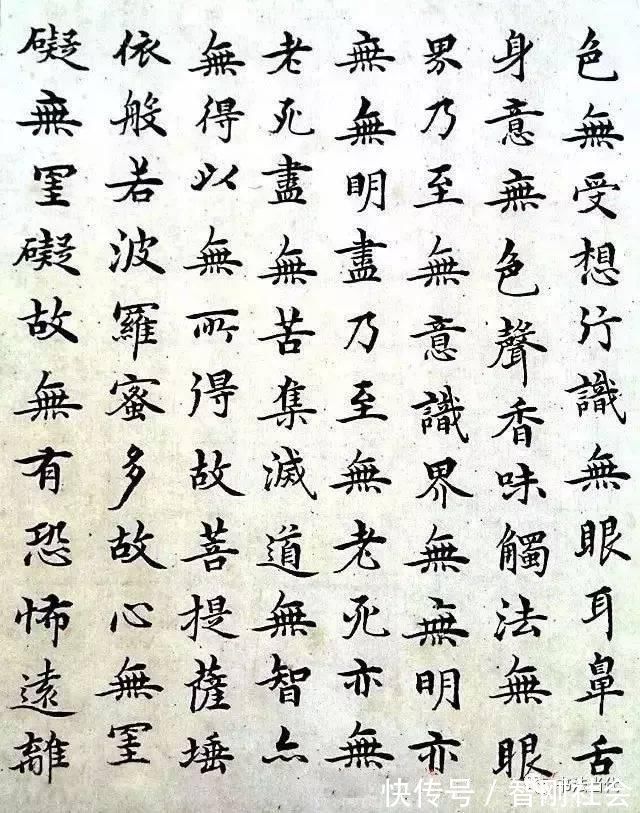 色無受想行識無眼耳鼻舌
身意無色聲香味觸法無眼
界乃至無意識界無無明亦
無無明盡乃至無老死亦無
老死盡無苦集滅道無智亦
無得以無所得故菩提薩埵
依般若波羅蜜多故心無罣
礙無罣礙故無有恐怖遠離
书法当代
快传号/智刚社会